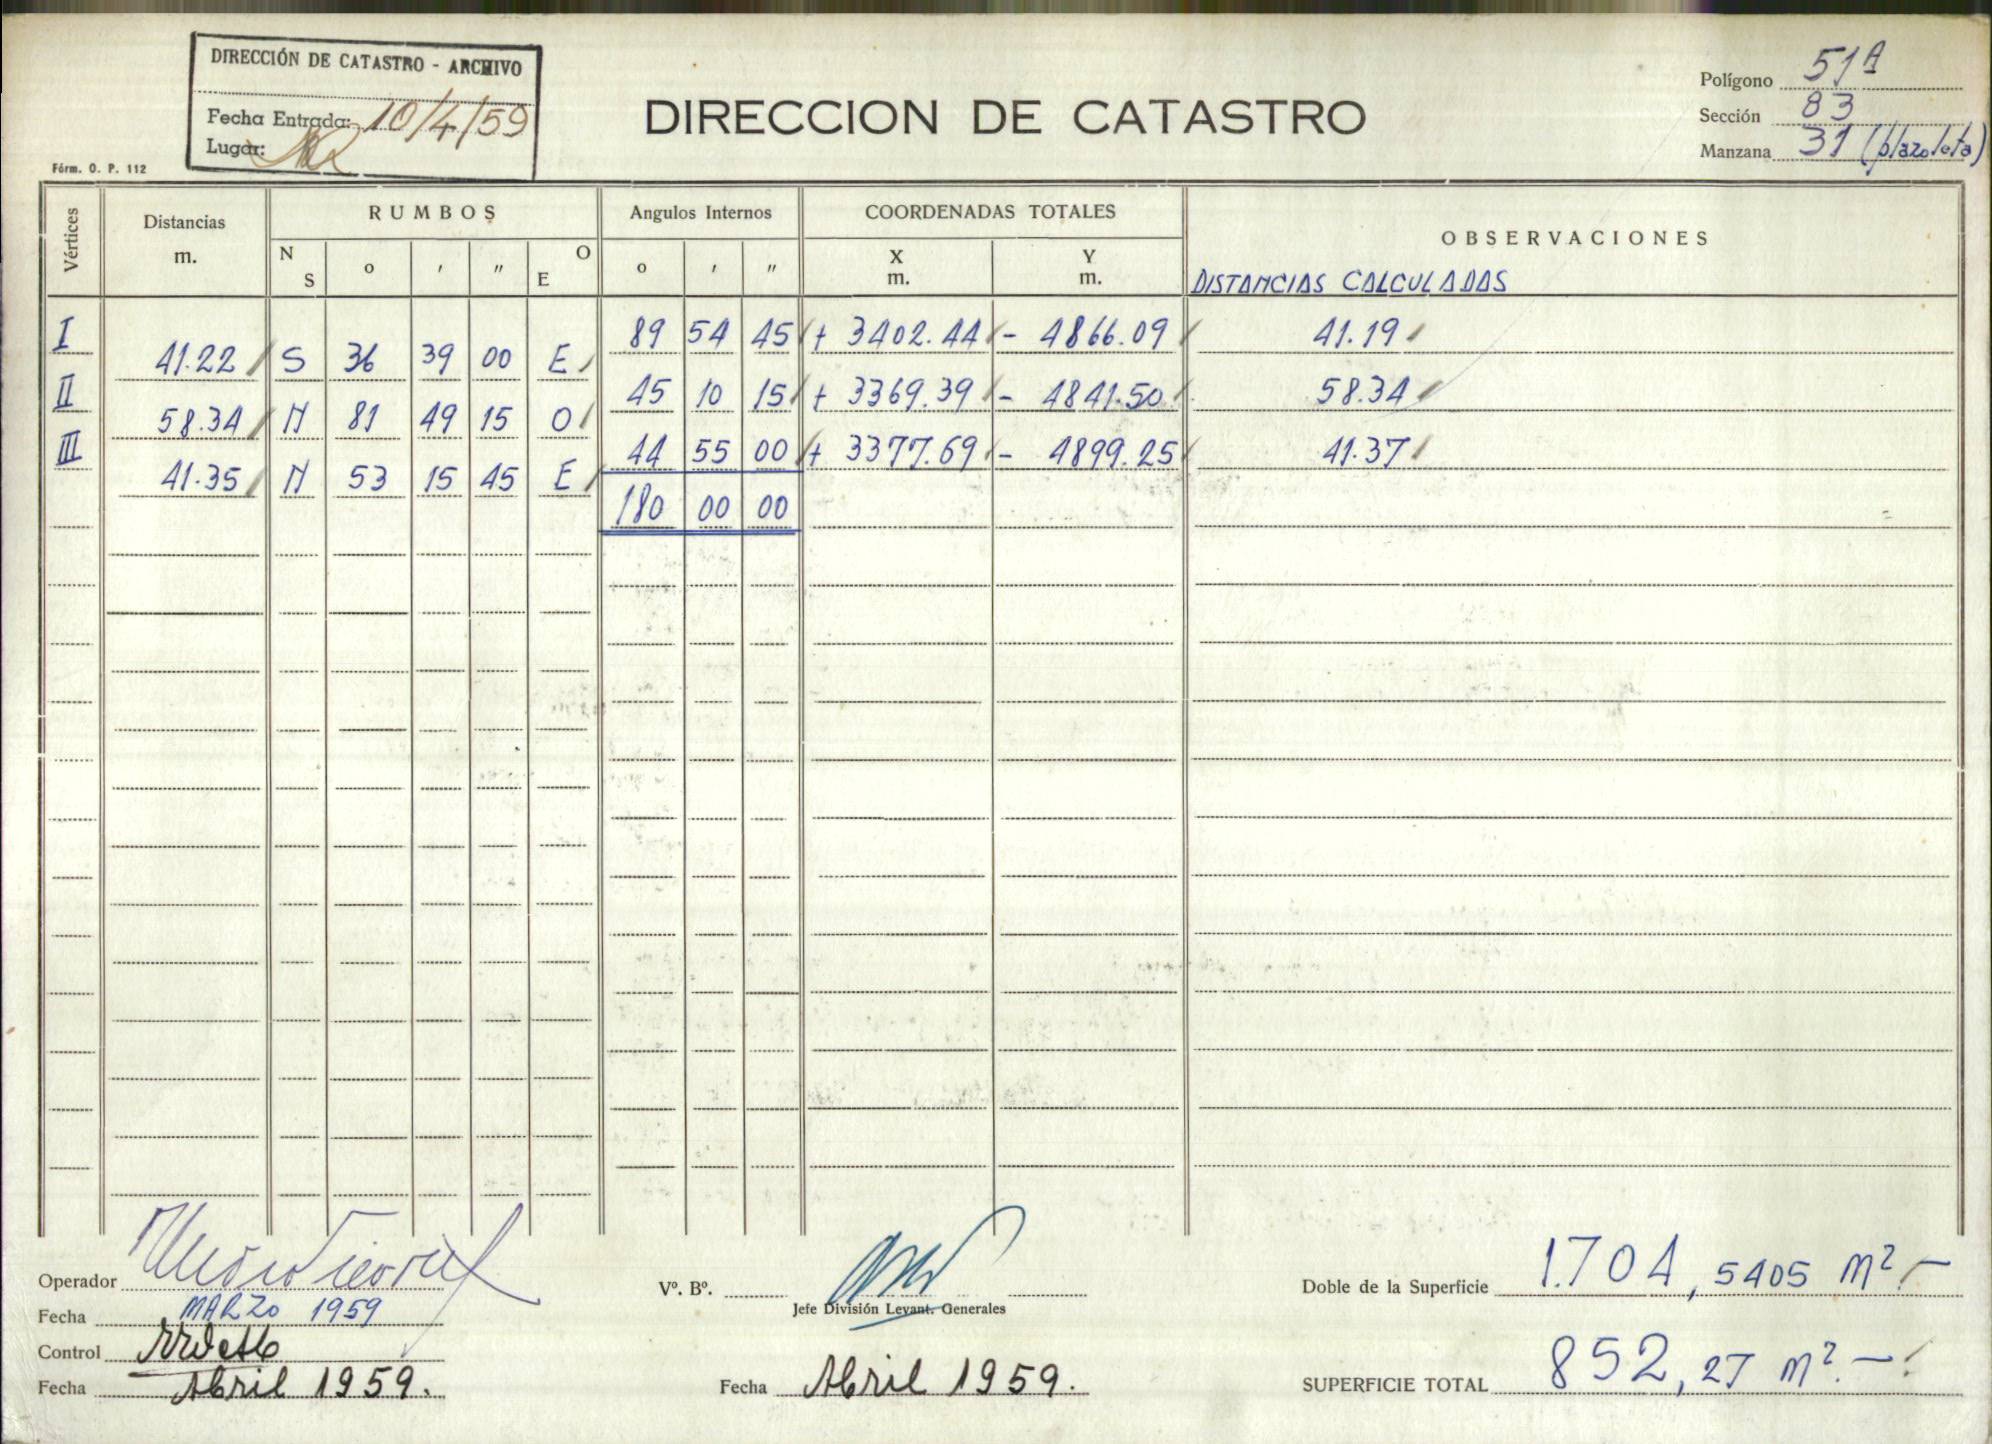 DIRECCIÓN DE CATASTRO - ARCHIVO
Fecha Entrada: 10/4/59
Lugar:
DIRECCION DE CATASTRO
Polígono 51A
Sección 83
Manzana 31 (plazoleta)
Fórm. O. P. 112
Vértices Distancias m. RUMBOS Angulos Internos COORDENADAS TOTALES OBSERVACIONES
N S o ' " O E o ' " X m. Y m. DISTANCIAS CALCULADAS
I 89 54 45 + 3402.44 - 4866.09 41.19
41.22 S 36 39 00 E
II 45 10 15 + 3369.39 - 4841.50 58.34
58.34 N 81 49 15 O
III 44 55 00 + 3377.69 - 4899.25 41.37
41.35 N 53 15 45 E
180 00 00
Operador
Fecha MARZO 1959
Control
Fecha Abril 1959.
Vº. Bº.
Jefe División Levant. Generales
Fecha Abril 1959.
Doble de la Superficie 1.704,5405 m² -
SUPERFICIE TOTAL 852,27 m². -